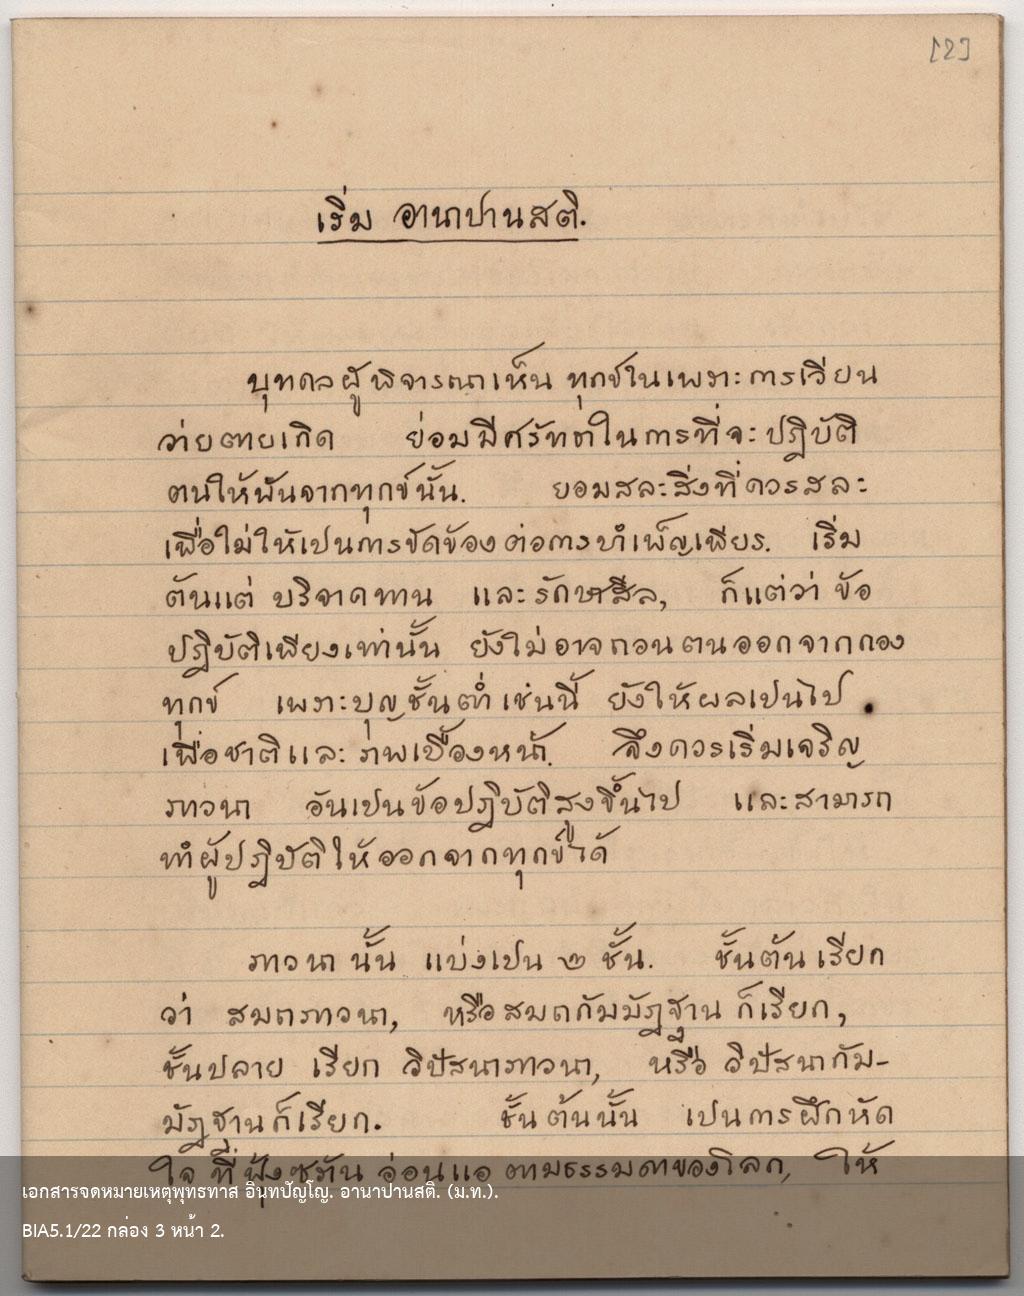 [2]
เริ่ม อานาปานสติ.
บุทคลผู้พิจารณาเห็น ทุกข์ในเพราะการเวียน
ว่ายตายเกิด ย่อมมีศรัทธาในการที่จะปฏิบัติ
ตนให้พ้นจากทุกข์นั้น. ยอมสละสิ่งที่ควรสละ
เพื่อไม่ให้เปนการขัดข้อง ต่อการบำเพ็ญเพียร. เริ่ม
ต้นแต่ บริจาคทาน และรักษาศีล, ก็แต่ว่า ข้อ
ปฏิบัติเพียงเท่านั้น ยังไม่อาจถอนตนออกจากกอง
ทุกข์ เพราะบุญชั้นต่ำ เช่นนี้ ยังให้ผลเปนไป
เพื่อชาติและภพเบื้องหน้า. จึงควรเริ่มเจริญ
ภาวนา อันเปนข้อปฏิบัติสูงขึ้นไป และสามารถ
ทำผู้ปฏิบัติให้ออกจากทุกข์ได้
ภาวนานั้น แบ่งเปน ๒ ชั้น. ชั้นต้น เรียก
ว่า สมถภาวนา, หรือสมถกัมมัฏฐาน ก็เรียก,
ชั้นปลาย เรียก วิปัสนาภาวนา, หรือ วิปัสนากัม-
มัฏฐานก็เรียก. ชั้นต้นนั้น เปนการฝึกหัด
ใจ ที่ฟุ้งซ่าน อ่อนแอ ตามธรรมดาของโลก, ให้
เอกสารจดหมายเหตุพุทธทาส อินทปัญโญ. อานาปานสติ. (ม.ท.).
BIA5.1/22 กล่อง 3 หน้า 2.